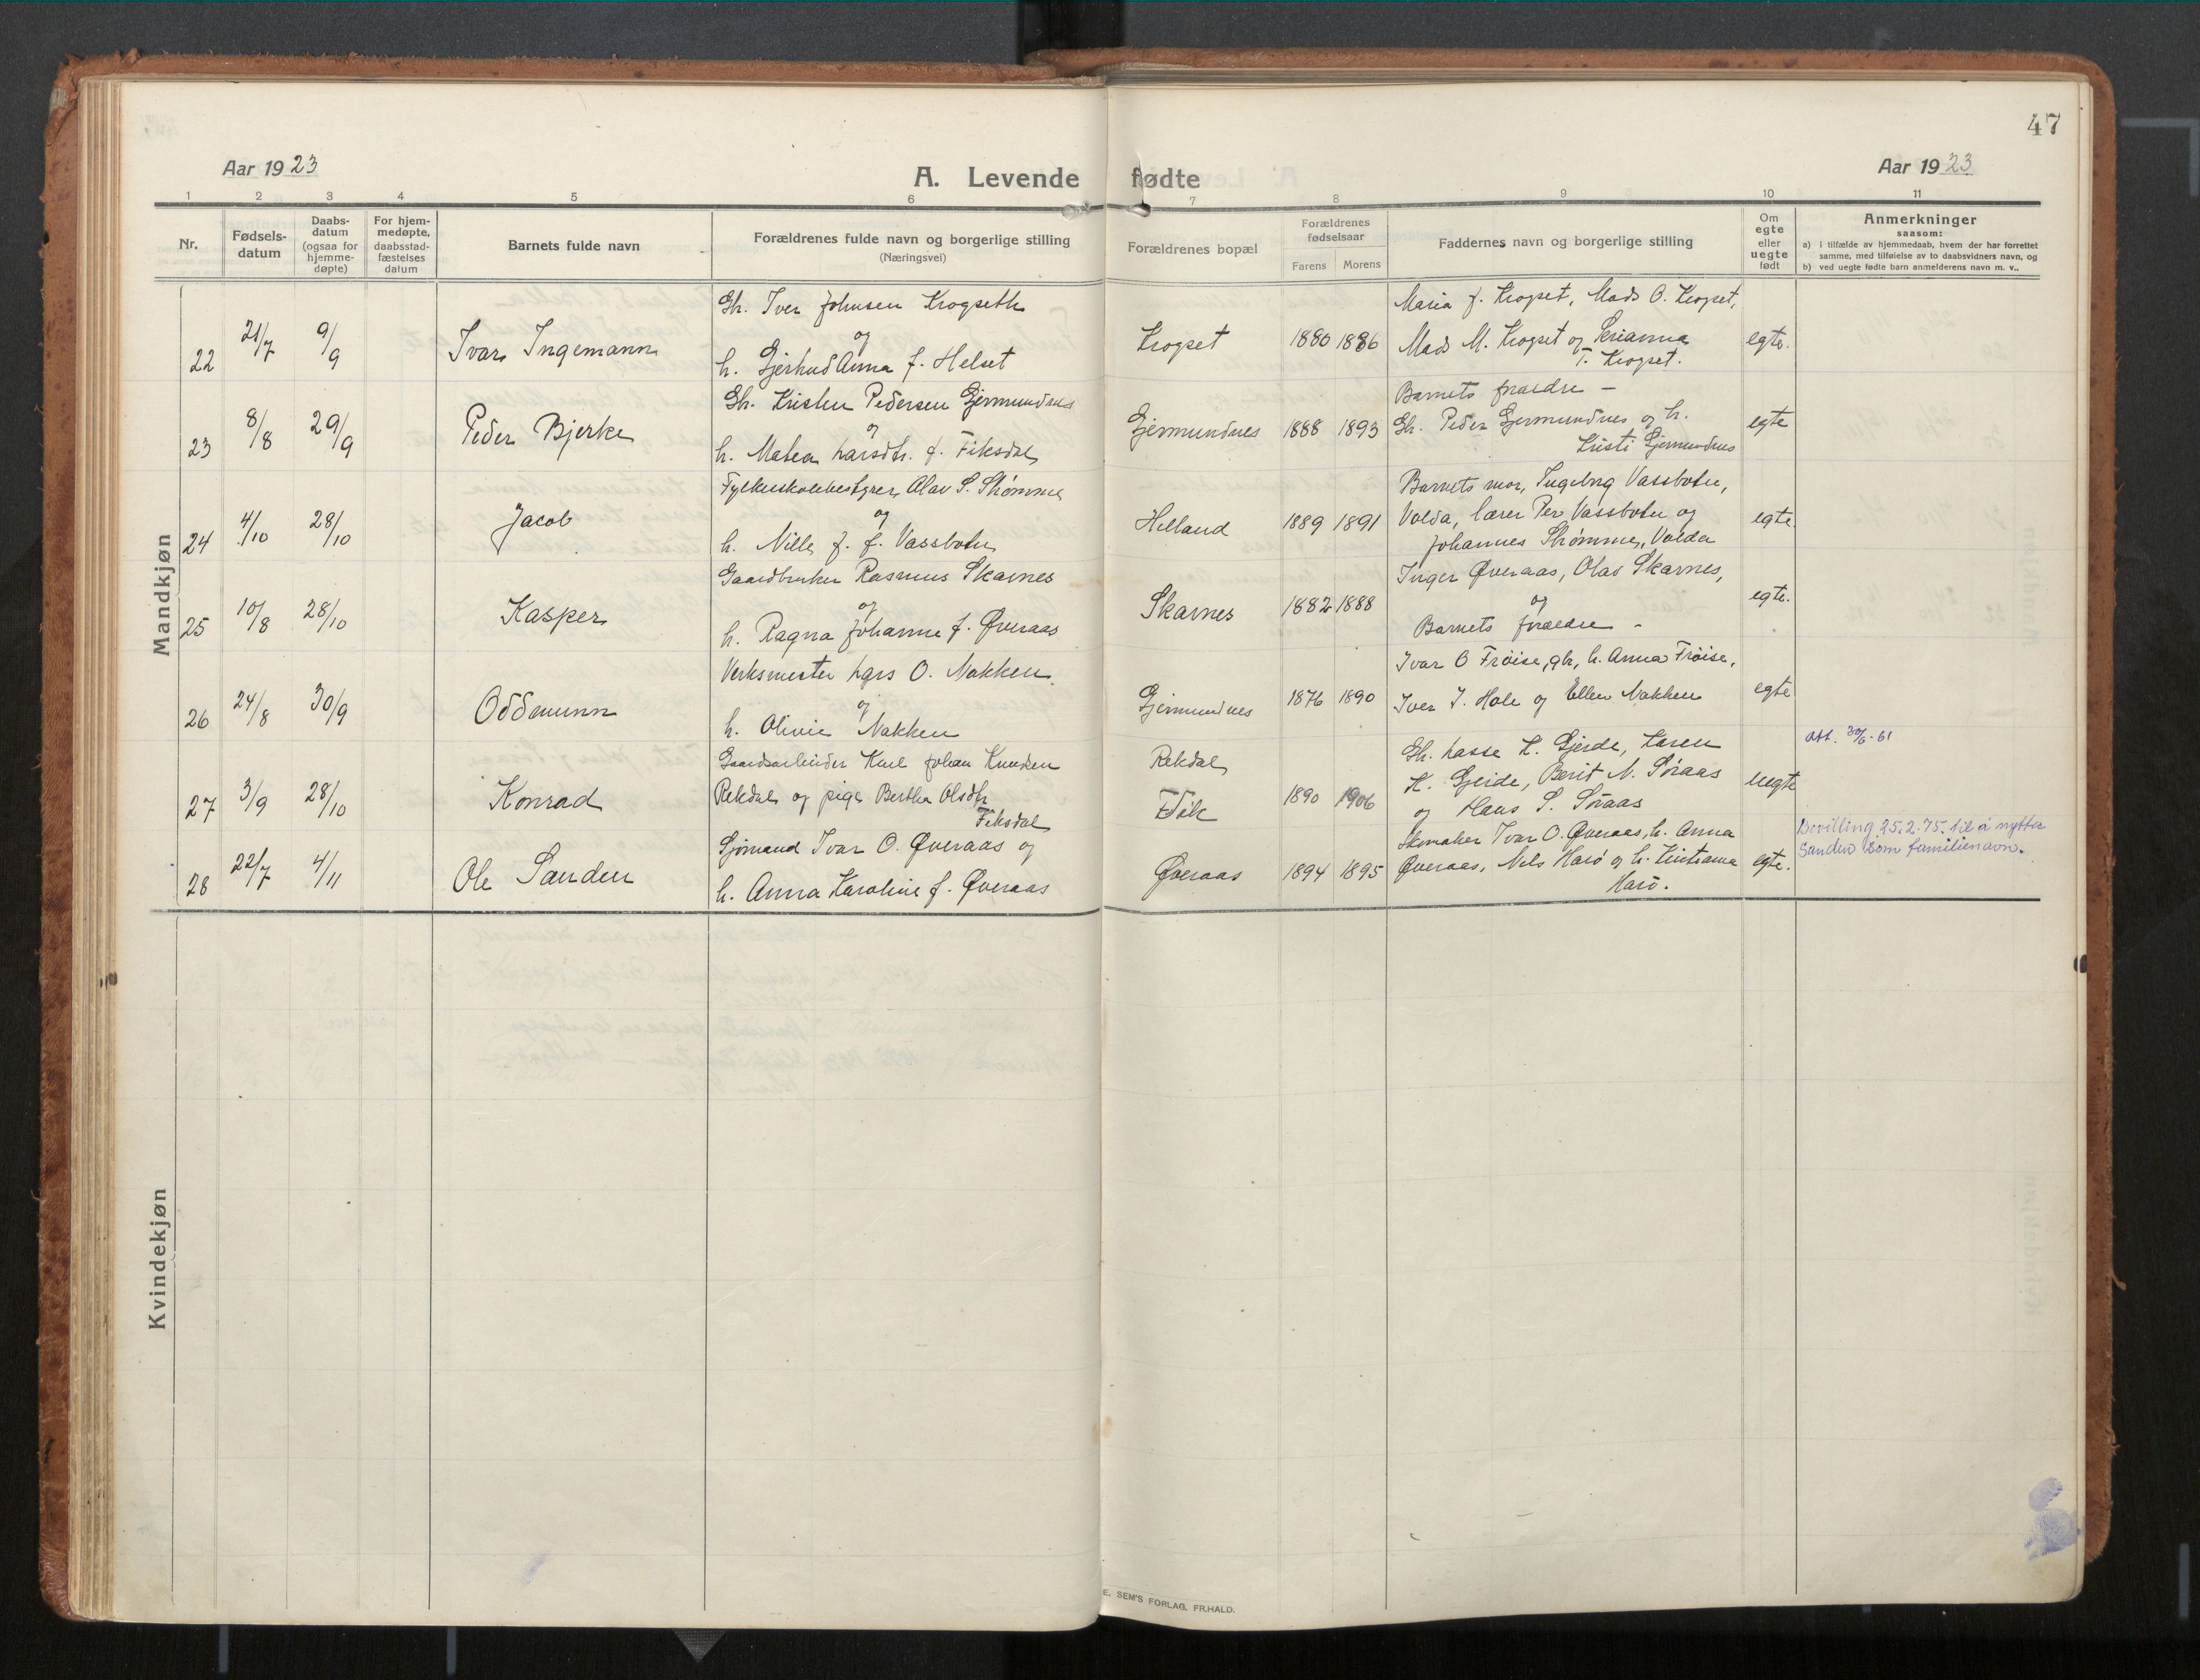 47
Aar 1923
A. Levende fødte
Aar 1923
1 2 3 4 5 6 7 8 9 10 11
Nr.
Fødsels-
datum
Daabs-
datum
(ogsaa for
hjemme-
døpte)
For hjem-
medøpte,
daabsstad-
fæstelses
datum
Barnets fulde navn
Forældrenes fulde navn og borgerlige stilling
(Næringsvei)
Forældrenes bopæl
Forældrenes
fødselsaar
Farens Morens
Faddernes navn og borgerlige stilling
Om
egte
eller
uegte
født
Anmerkninger
saasom:
a) i tilfælde av hjemmedaab, hvem der har forrettet
samme, med tilføielse av to daabsvidners navn, og
b) ved uegte fødte barn anmelderens navn m. v..
Mandkjøn
22 21/7 9/9 Ivar Ingemann
Gbr. Iver Johnsen Krogseth
og
h. Gjerhud Anna f. Helset
Krogset 1880 1886
Maria J. Krogset, Mads O. Krogset,
Mads M. Krogset og Serianna
T. Krogset.
egte.
23 8/8 29/9 Peder Bjerke
Gbr. Kristen Pedersen Gjermundnes
og
h. Matea Larsdtr. f. Fiksdal
Gjermundnes 1888 1893
Barnets foraeldre –
Gbr. Peder Gjermundnes og h.
Kristi Gjermundnes
egte
24 4/10 28/10 Jacob
Fylkesskolebestyrer Olav S. Strømme
og
h. Nille J. f. Vassbotn
Helland 1889 1891
Barnets mor, Ingebrg Vassbotn,
Volda, lærer Per Vassbotn og
Johannes Strømme, Volda
egte.
25 10/8 28/10 Kasper
Gaardbruker Rasmus Skarnes
og
h. Ragna Johanne f. Øveraas
Skarnes 1882 1888
Inger Øveraas, Olav Skarnes,
og
Barnets foraeldre –
egte.
26 24/8 30/9 Oddmunn
Verksmester Lars O. Nakken
og
h. Olivie Nakken
Gjermundnes 1876 1890
Ivar O Frøise, gbr, h. Anna Frøise,
Iver J. Hole og Ellen Nakken
egte
27 3/9 28/10 Konrad
Gaardsarbeider Karl Johan Knudsen
Rekdal og pige Bertha Olsdtr
Fiksdal
Rekdal
Fik
1890 1906
Gbr. Lasse K. Gjerde, Karen
K. Gjerde, Berit N. Søraas
og Hans S. Søraas
uegte
Att. 30/6-61
28 22/7 4/11 Ole Sanden
Sjømand Ivar O. Øveraas og
h. Anna Karoline f. Øveraas
Øveraas 1894 1895
Skomaker Ivar O. Øveraas, h. Anna
Øveraas, Nels Harø og h. Kristianna
Harø.
egte.
Bevilling 25.2.75. til å nytta
Sanden som familienavn.
Kvindekjøn
E. SEM'S FORLAG, FR.HALD.